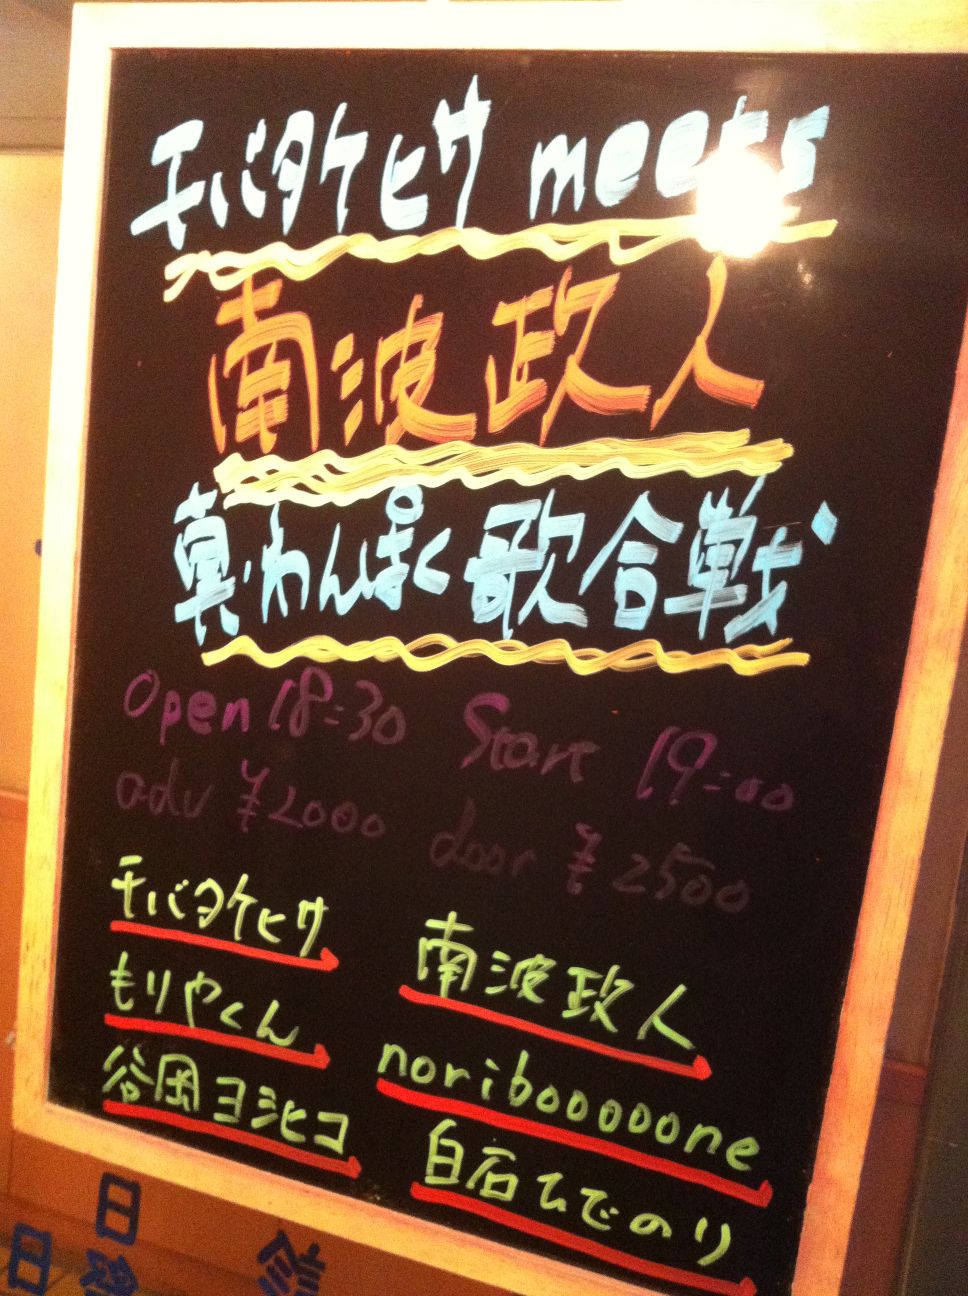 チバタケヒサ meets
南波政人
真・わんぱく歌合戦
Open 18:30 Start 19:00
adv ¥2000 door ¥2500
チバタケヒサ 南波政人
もりやくん noribooooone
谷岡ヨシヒコ 白石ひでのり
日
日